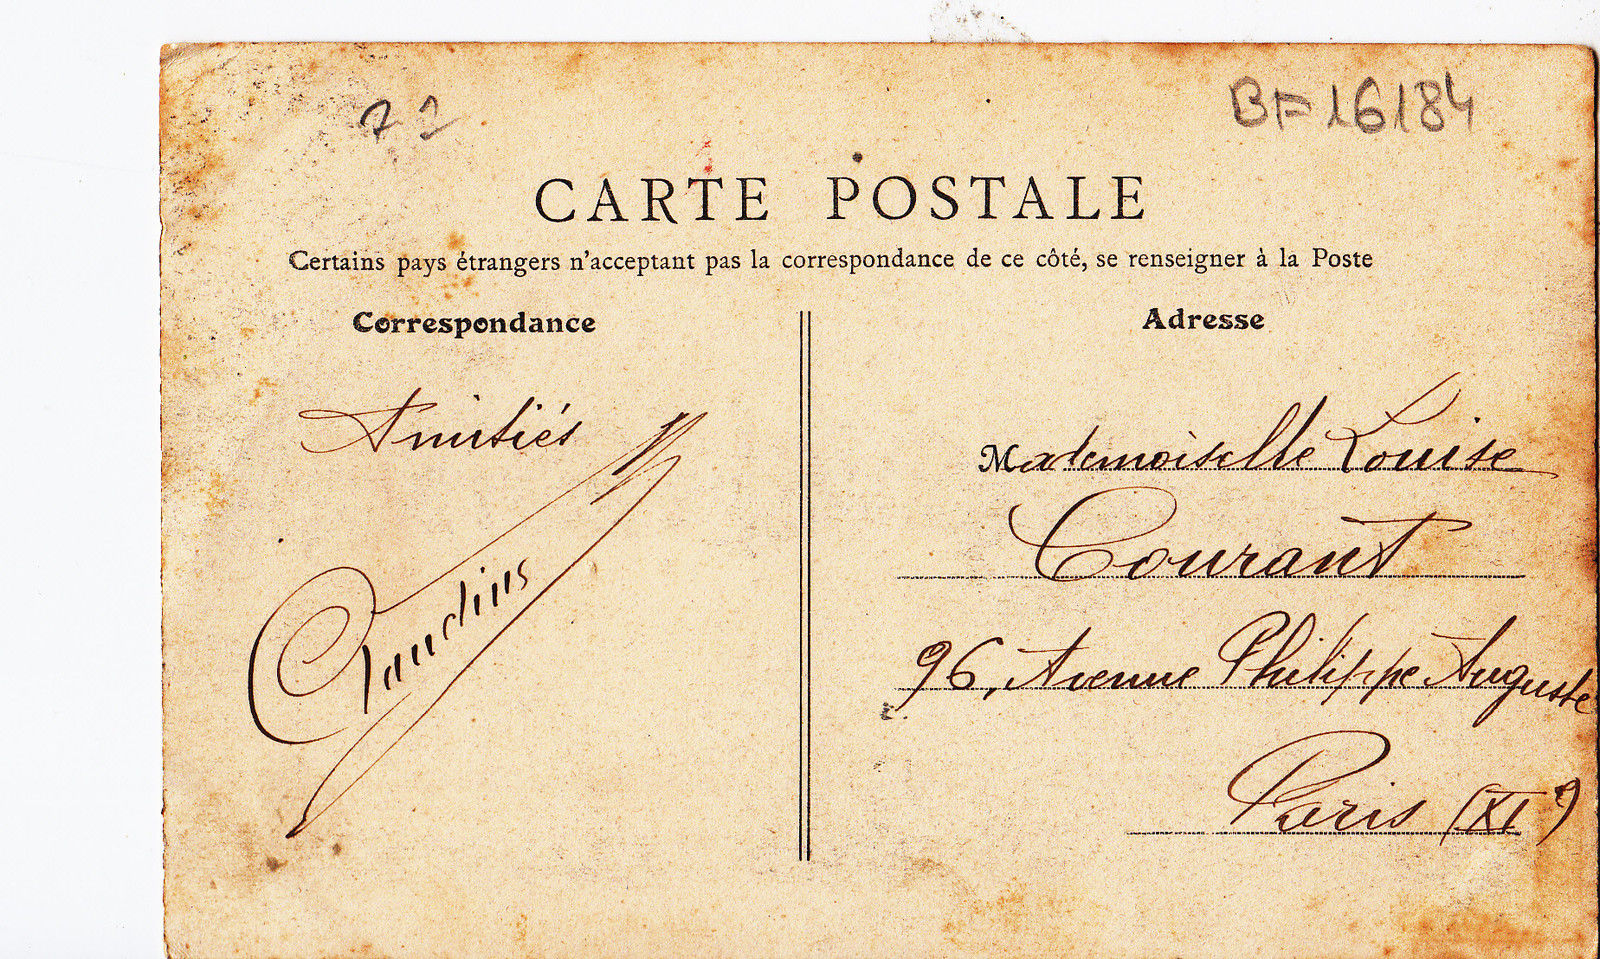 71
BF 16184
CARTE POSTALE
Certains pays étrangers n'acceptant pas la correspondance de ce côté, se renseigner à la Poste
Correspondance
Adresse
Amitiés
Claudius
Mademoiselle Louise
Courant
96, Avenue Philippe Auguste
Paris (XIe)